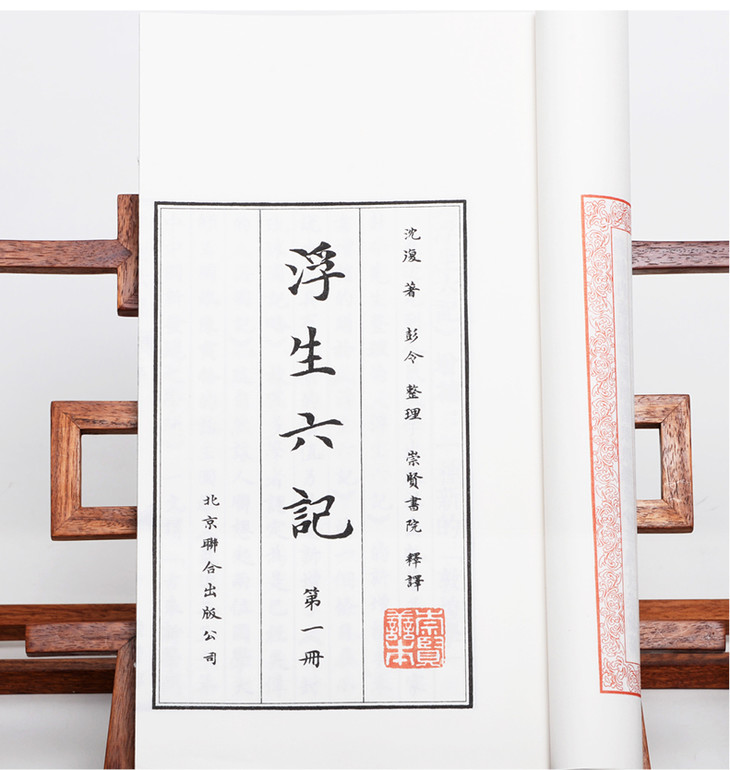 沈復 著 彭令 整理 崇賢書院 釋譯
崇賢善本
浮生六記
第一冊
北京聯合出版公司